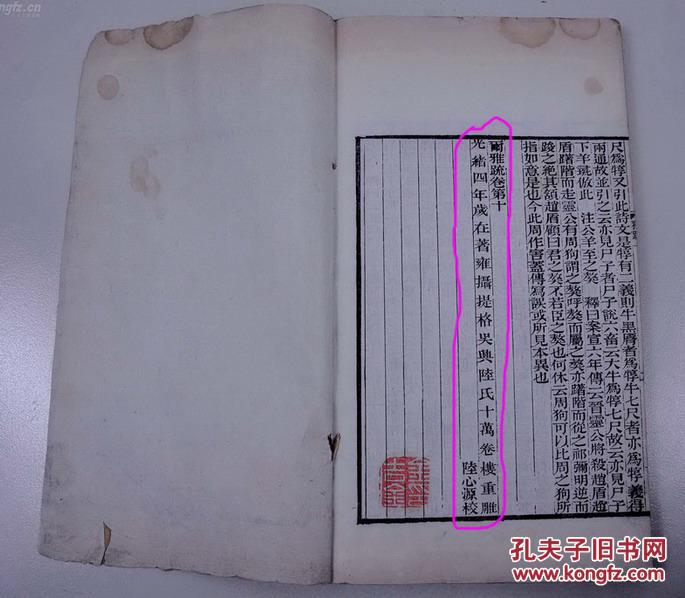 尺為犉又引此詩文是犉有二義則牛黑脣者為犉牛七尺者亦為犉義得
兩通故並引之云亦見尸子者尸子說六畜云大牛為犉七尺故云亦見尸子
下羊䍮倣此　注公羊至之獒　釋曰案宣六年傳云晉靈公將殺趙盾趙
盾躇階而走靈公有周狗謂之獒呼獒而屬之獒亦躇階而從之祁彌明逆而
踆之絕其頷趙盾顧曰君之獒不若臣之獒也何休云周狗可以比周之狗所
指如意是也今此周作害蓋傳寫誤或所見本異也
爾雅疏卷第十
光緒四年歲在著雍攝提格吳興陸氏十萬卷樓重雕
陸心源校
kongfz.cn
孔夫子旧书网